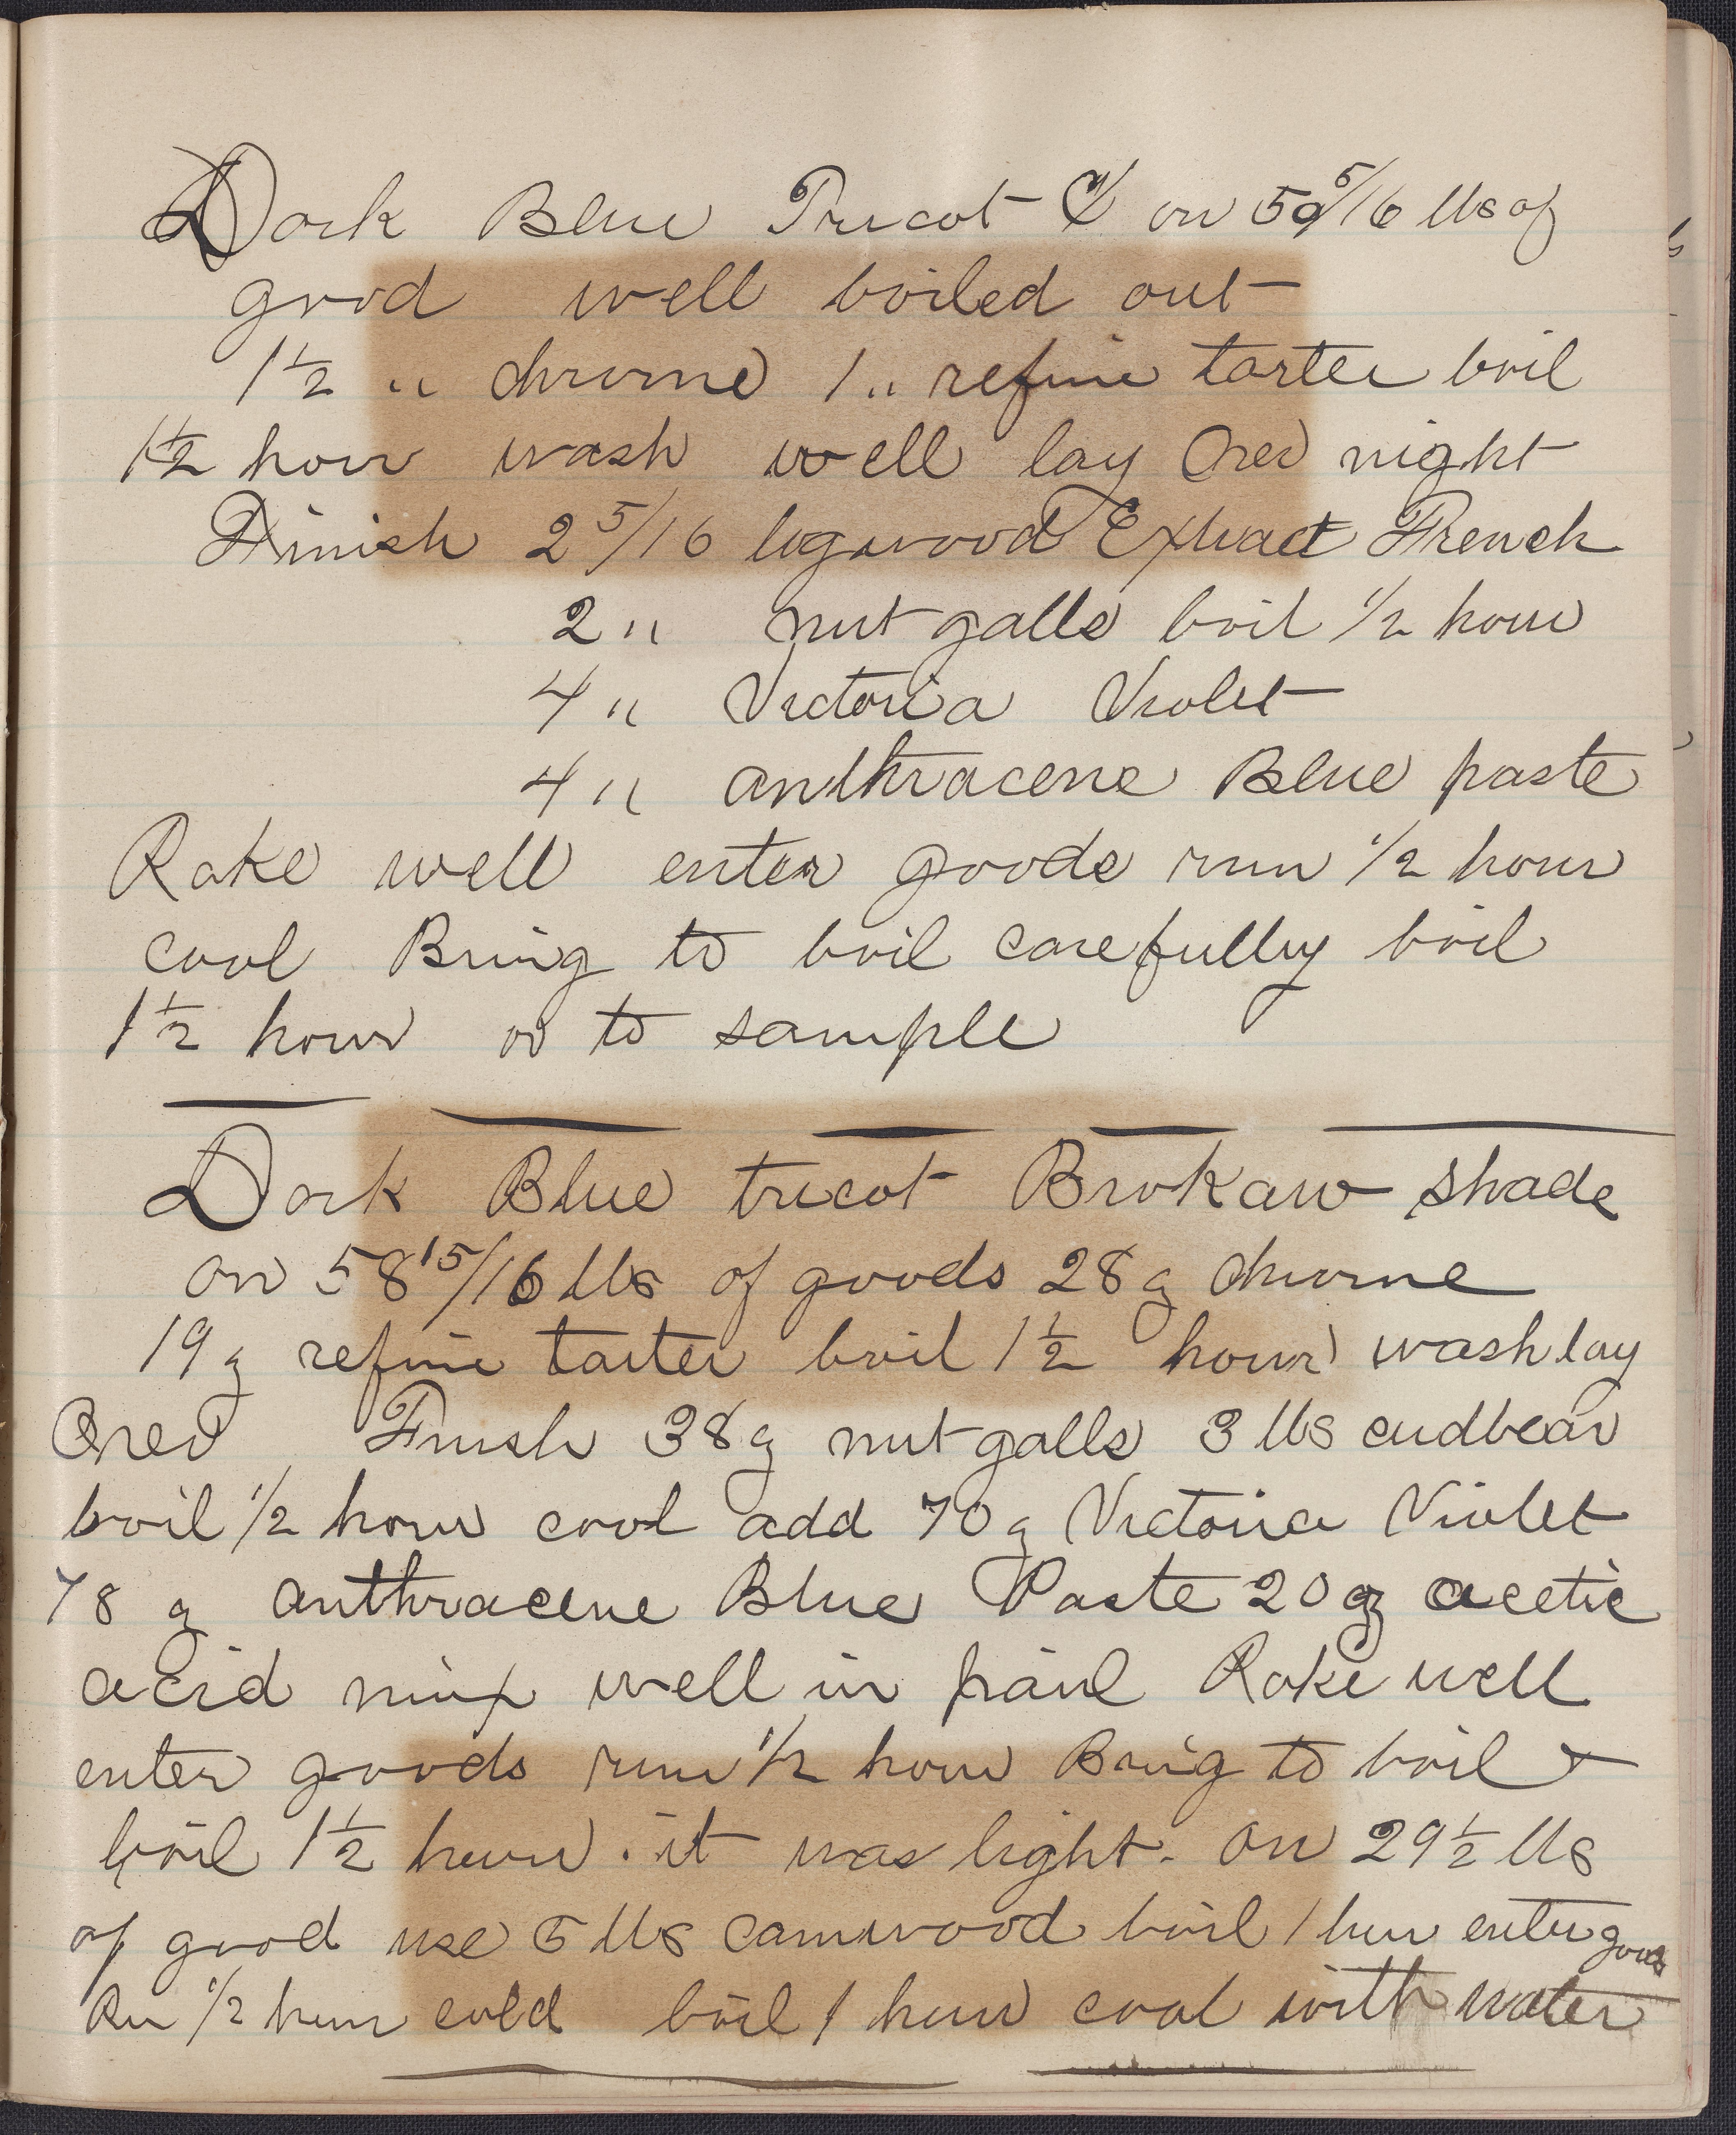 Dark Blue Tricot on 50 5/16 lbs of
good well boiled out
1 1/2 " chrome 1 " refine tarter boil
1 1/2 hour wash well lay Over night
Finish 2 5/16 logwood Extract French
2 " nut galls boil 1/2 hour
4 " Victoria Violet
4 " anthracene Blue paste
Rake well enter goods run 1/2 hour
cool Bring to boil carefully boil
1 1/2 hour or to sample
Dark Blue tricot Brokaw shade
on 58 15/16 lbs of goods 28 g chrome
19 g refine tarter boil 1 1/2 hour wash lay
Over Finish 38 g nut galls 3 lbs cudbear
boil 1/2 hour cool add 70 g Victoria Violet
78 g anthracene Blue Paste 20 g acetic
acid mix well in pail Rake well
enter goods run 1/2 hour Bring to boil &
boil 1 1/2 hour . it was light . on 29 1/2 lbs
of good use 5 lbs camwood boil 1 hour enter goods
Run 1/2 hour cold boil 1 hour cool with water